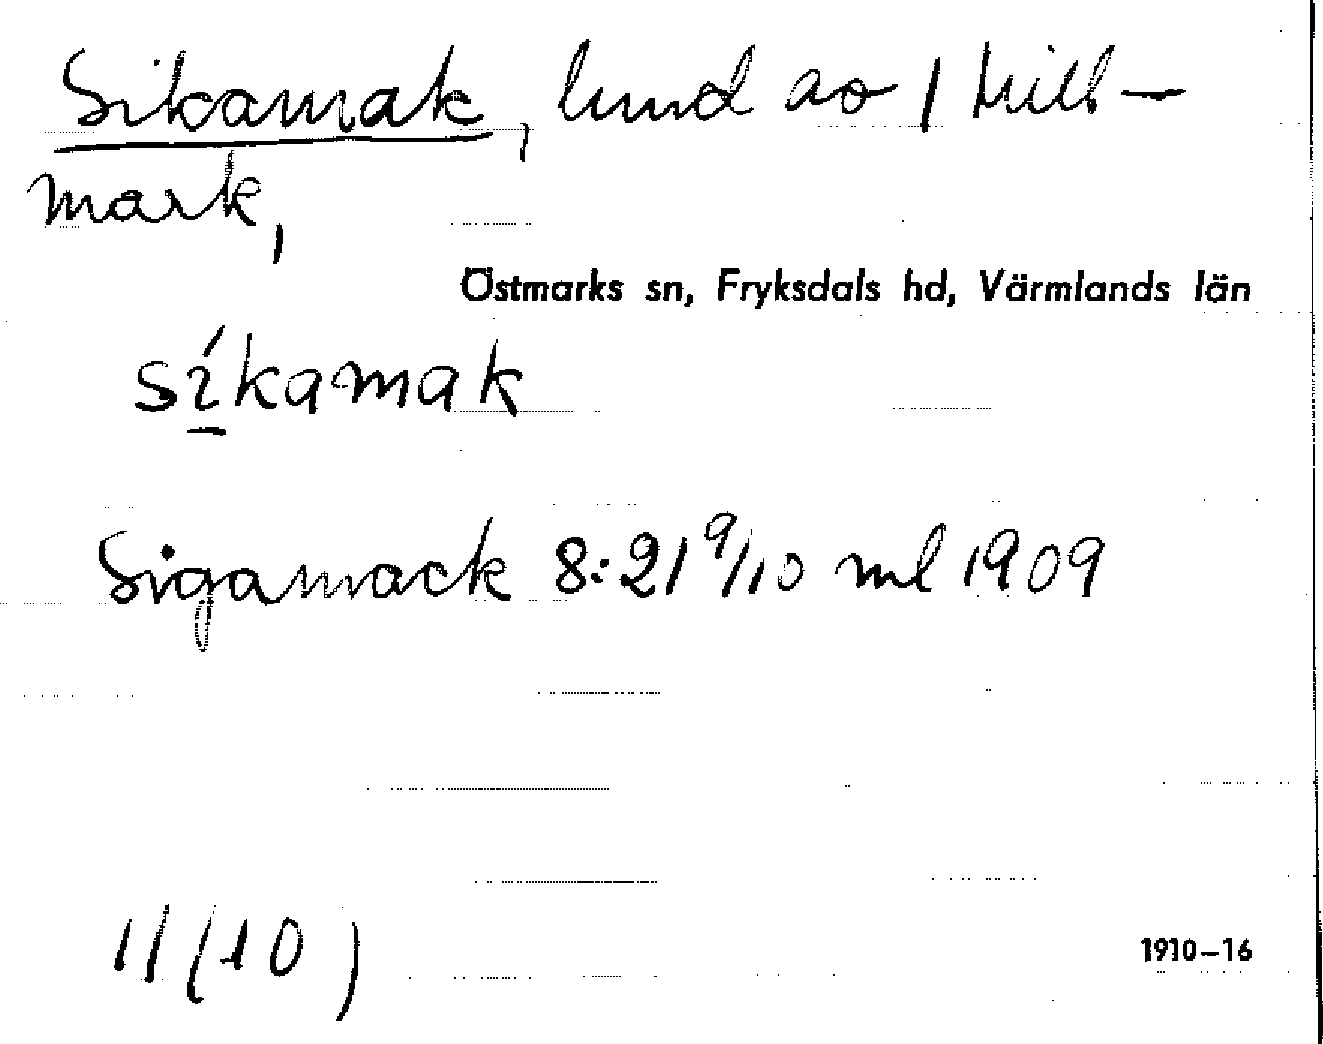 Sikamak, lund av 1 Mill-
mark,
Östmarks sn, Fryksdals hd, Värmlands län
síkamak
Sigamack 8:21 9/10 ml 1909
11(10)
1910–16